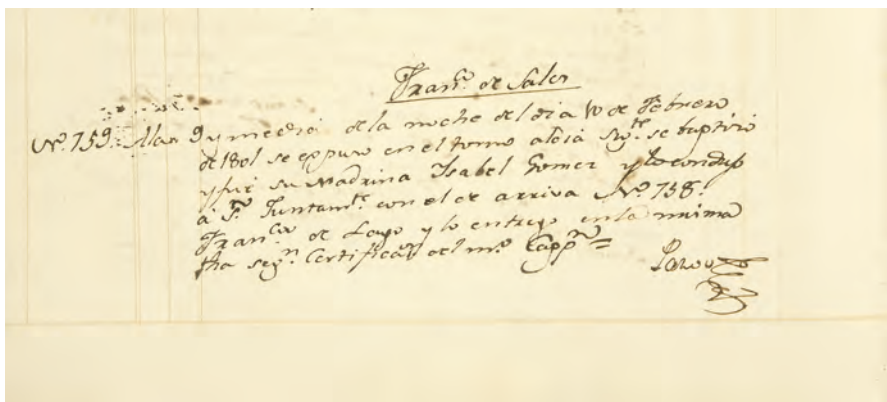 Fran.co de Sales
N.o 759. A las 9 y media de la noche del dia 10 de Febrero
de 1801 se expuso en el torno al dia sig.te se baptizó
y fue su Madrina Isabel Gomez y lo condujo
á S.n Juntam.te con el de arriva N.o 758.
Fran.co de Lago y lo entregó en la misma
fha seg.n Certificaz.n del mo. Capp.n =